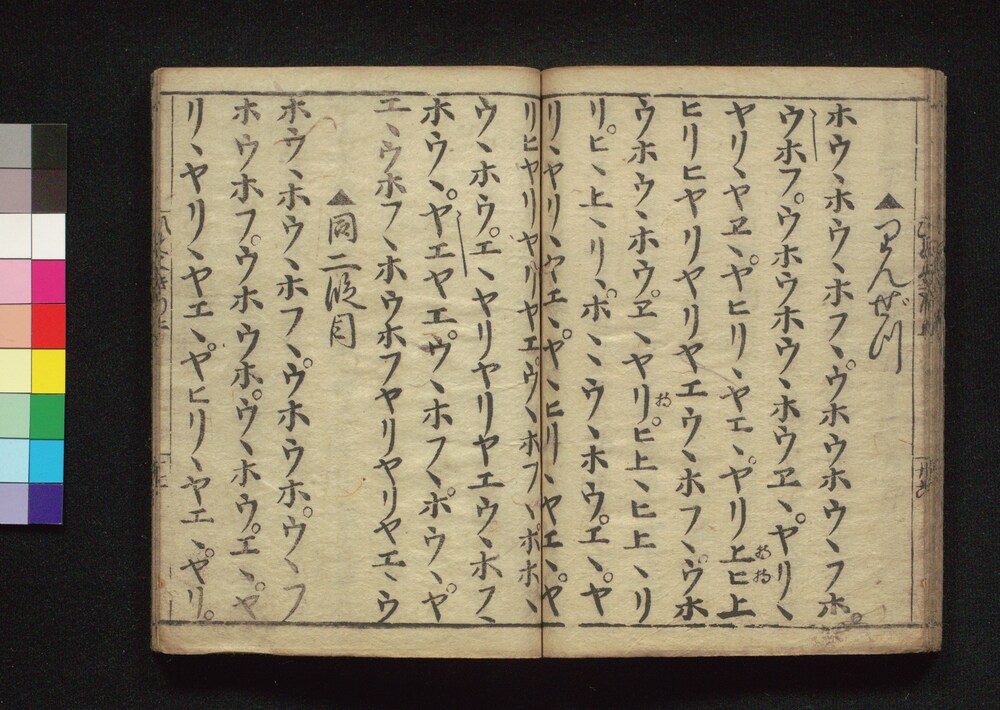 ▲りんぜつ
ホウ、ホウ、ホフ、ウ゚ホウホウ、フホ。
ウホプウホウホウ、ホウヱ、ヤ゚リ、
ヤリ、ヤヱ、ヤ゚ヒリ、ヤエ、ヤ゚リ上ヒ上
ヒリヒヤリヤリヤエウ、ホフ、ウ゚ホ
ウホウ、ホウ゚ヱ、ヤリ゚ヒ上、ヒ上、リ
リ゚ヒ、上、リ、ポ、、ウ、ホウ゚エ、ヤ
リ、ヤリ、ヤエ、ヤ゚、ヒリ、ヤエ、ヤ゚
リヒヤリヤリヤエウ゚、ホフ、ポホ、
ウ、ホウ゚エ、ヤリヤリヤエウ、ホフ、
ホウ、ヤ゚エヤエ゚ウ、ホフ、ポウ、ヤ゚
エ、ウホフ、ホウホフヤリヤリヤエ、ウ
▲同二段目
ホウ、ホウ、ホフ、ウ゚ホウポウ、フ
ホウホプウホウポウ、ホウ゚エ、ヤ゚
リ、ヤリ、ヤエ、ヤ゚ヒリ、ヤエ、ヤ゚リ。